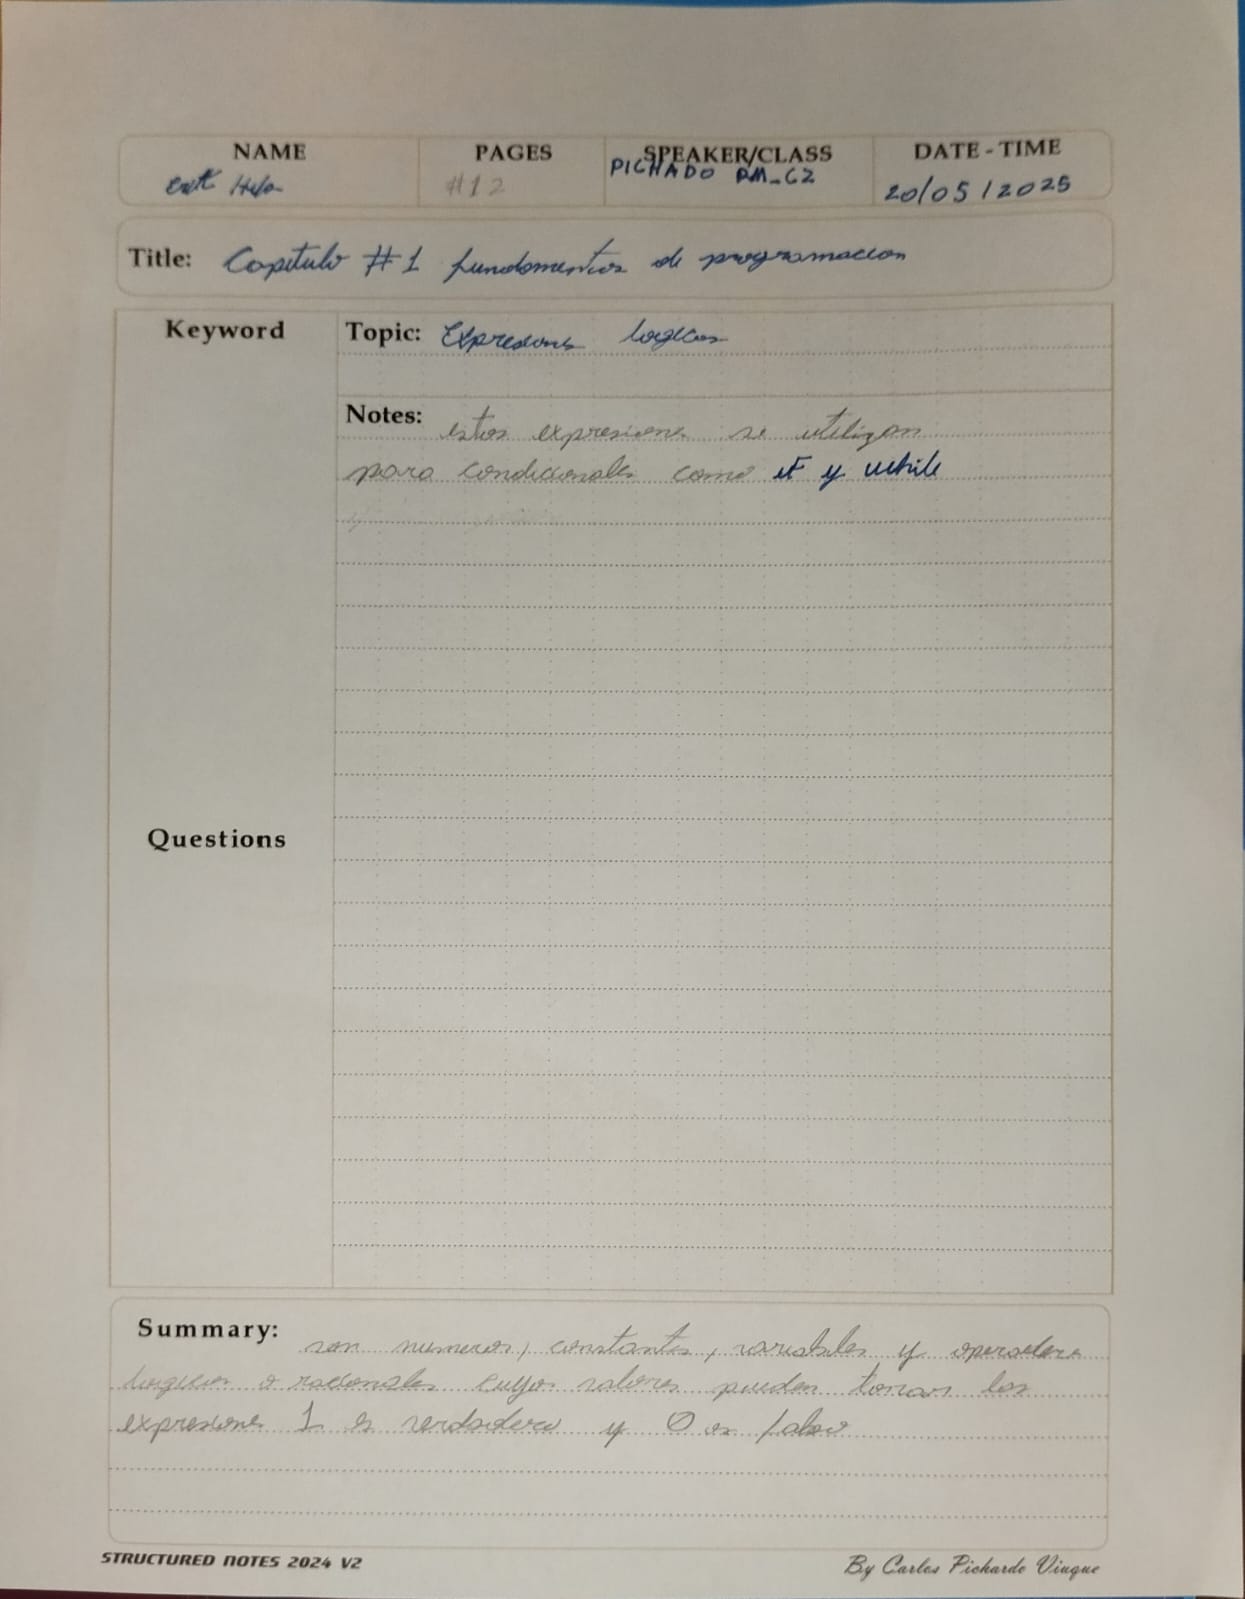 NAME PAGES SPEAKER/CLASS DATE-TIME
#12 PICHADO PM_C2 20/05/2025
Title: Capitulo #1 fundamentos de programacion
Keyword
Topic: Expresions logicas
Notes: estas expresiones se utilizan
para condicionales como if y while
Questions
Summary: son numeros, constantes, variables y operadores
logicos o racionales cuyos valores pueden tomar las
expresiones 1 es verdadero y 0 es falso
STRUCTURED NOTES 2024 V2
By Carlos Pichardo Viuque